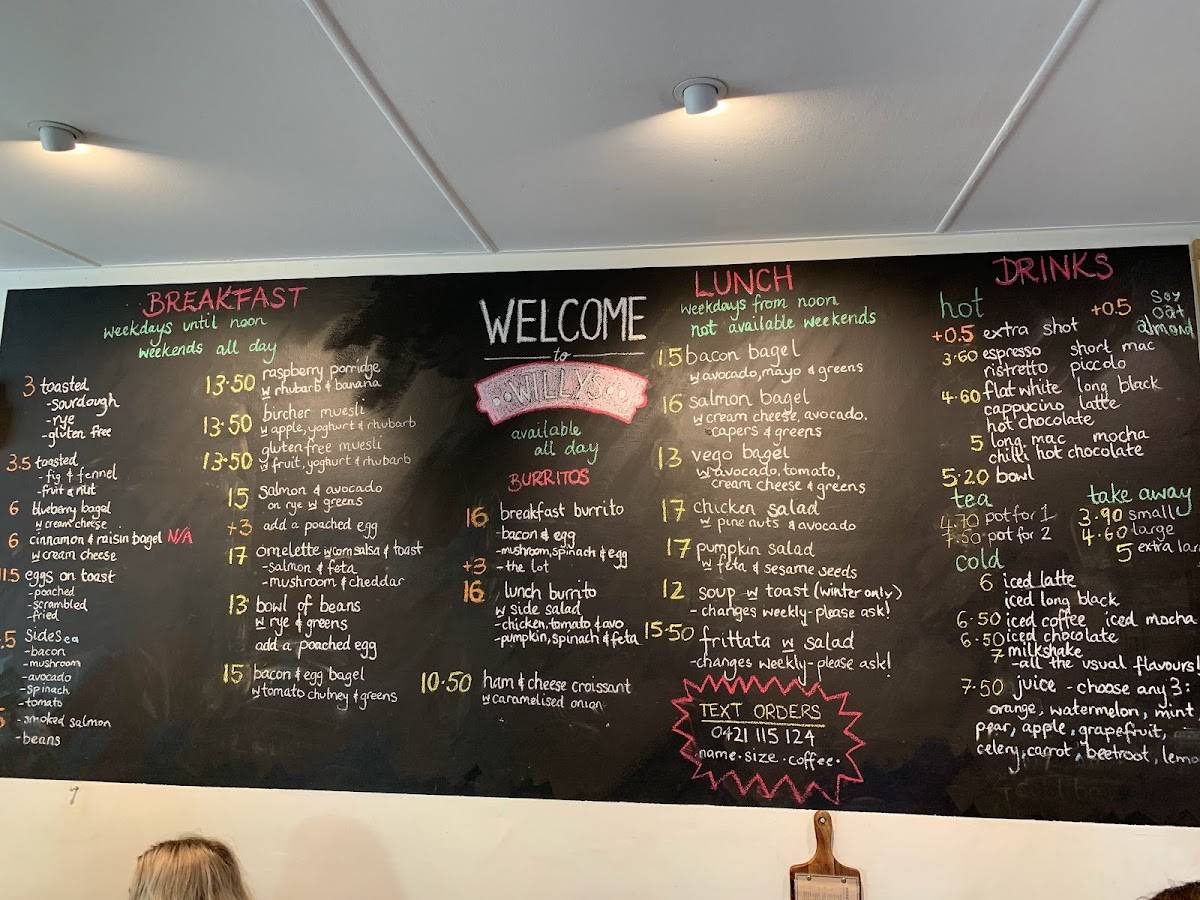 BREAKFAST
weekdays until noon
weekends all day
3 toasted
-sourdough
-rye
-gluten free
3.5 toasted
-fig & fennel
-fruit & nut
6 blueberry bagel
w cream cheese
6 cinnamon & raisin bagel N/A
w cream cheese
11.5 eggs on toast
-poached
-scrambled
-fried
.5 sides ea
-bacon
-mushroom
-avocado
-spinach
-tomato
-smoked salmon
-beans
13.50 raspberry porridge
w rhubarb & banana
13.50 bircher muesli
w apple, yoghurt & rhubarb
13.50 gluten free muesli
w fruit, yoghurt & rhubarb
15 salmon & avocado
on rye w greens
+3 add a poached egg
17 omelette w corn salsa & toast
-salmon & feta
-mushroom & cheddar
13 bowl of beans
w rye & greens
add a poached egg
15 bacon & egg bagel
w tomato chutney & greens
WELCOME
to
WILLYS
available
all day
BURRITOS
16 breakfast burrito
-bacon & egg
-mushroom, spinach & egg
+3 -the lot
16 lunch burrito
w side salad
-chicken, tomato & avo
-pumpkin, spinach & feta
10.50 ham & cheese croissant
w caramelised onion
LUNCH
weekdays from noon
not available weekends
15 bacon bagel
w avocado, mayo & greens
16 salmon bagel
w cream cheese, avocado.
capers & greens
13 vego bagel
w avocado, tomato,
cream cheese & greens
17 chicken salad
w pine nuts & avocado
17 pumpkin salad
w feta & sesame seeds
12 soup w toast (winter only)
-changes weekly-please ask!
15.50 frittata w salad
-changes weekly-please ask!
TEXT ORDERS
0421 115 124
name.size.coffee.
DRINKS
hot
+0.5 soy
oat
almond
+0.5 extra shot
3.60 espresso short mac
ristretto piccolo
4.60 flat white long black
cappucino latte
hot chocolate
5 long mac mocha
chilli hot chocolate
5.20 bowl
tea
4.70 pot for 1
pot for 2
take away
3.90 small
4.60 large
5 extra lar
cold
6 iced latte
iced long black
6.50 iced coffee iced mocha
6.50 iced chocolate
7 milkshake
-all the usual flavours!
7.50 juice - choose any 3:
orange, watermelon, mint
pear, apple, grapefruit,
celery, carrot, beetroot, lemo